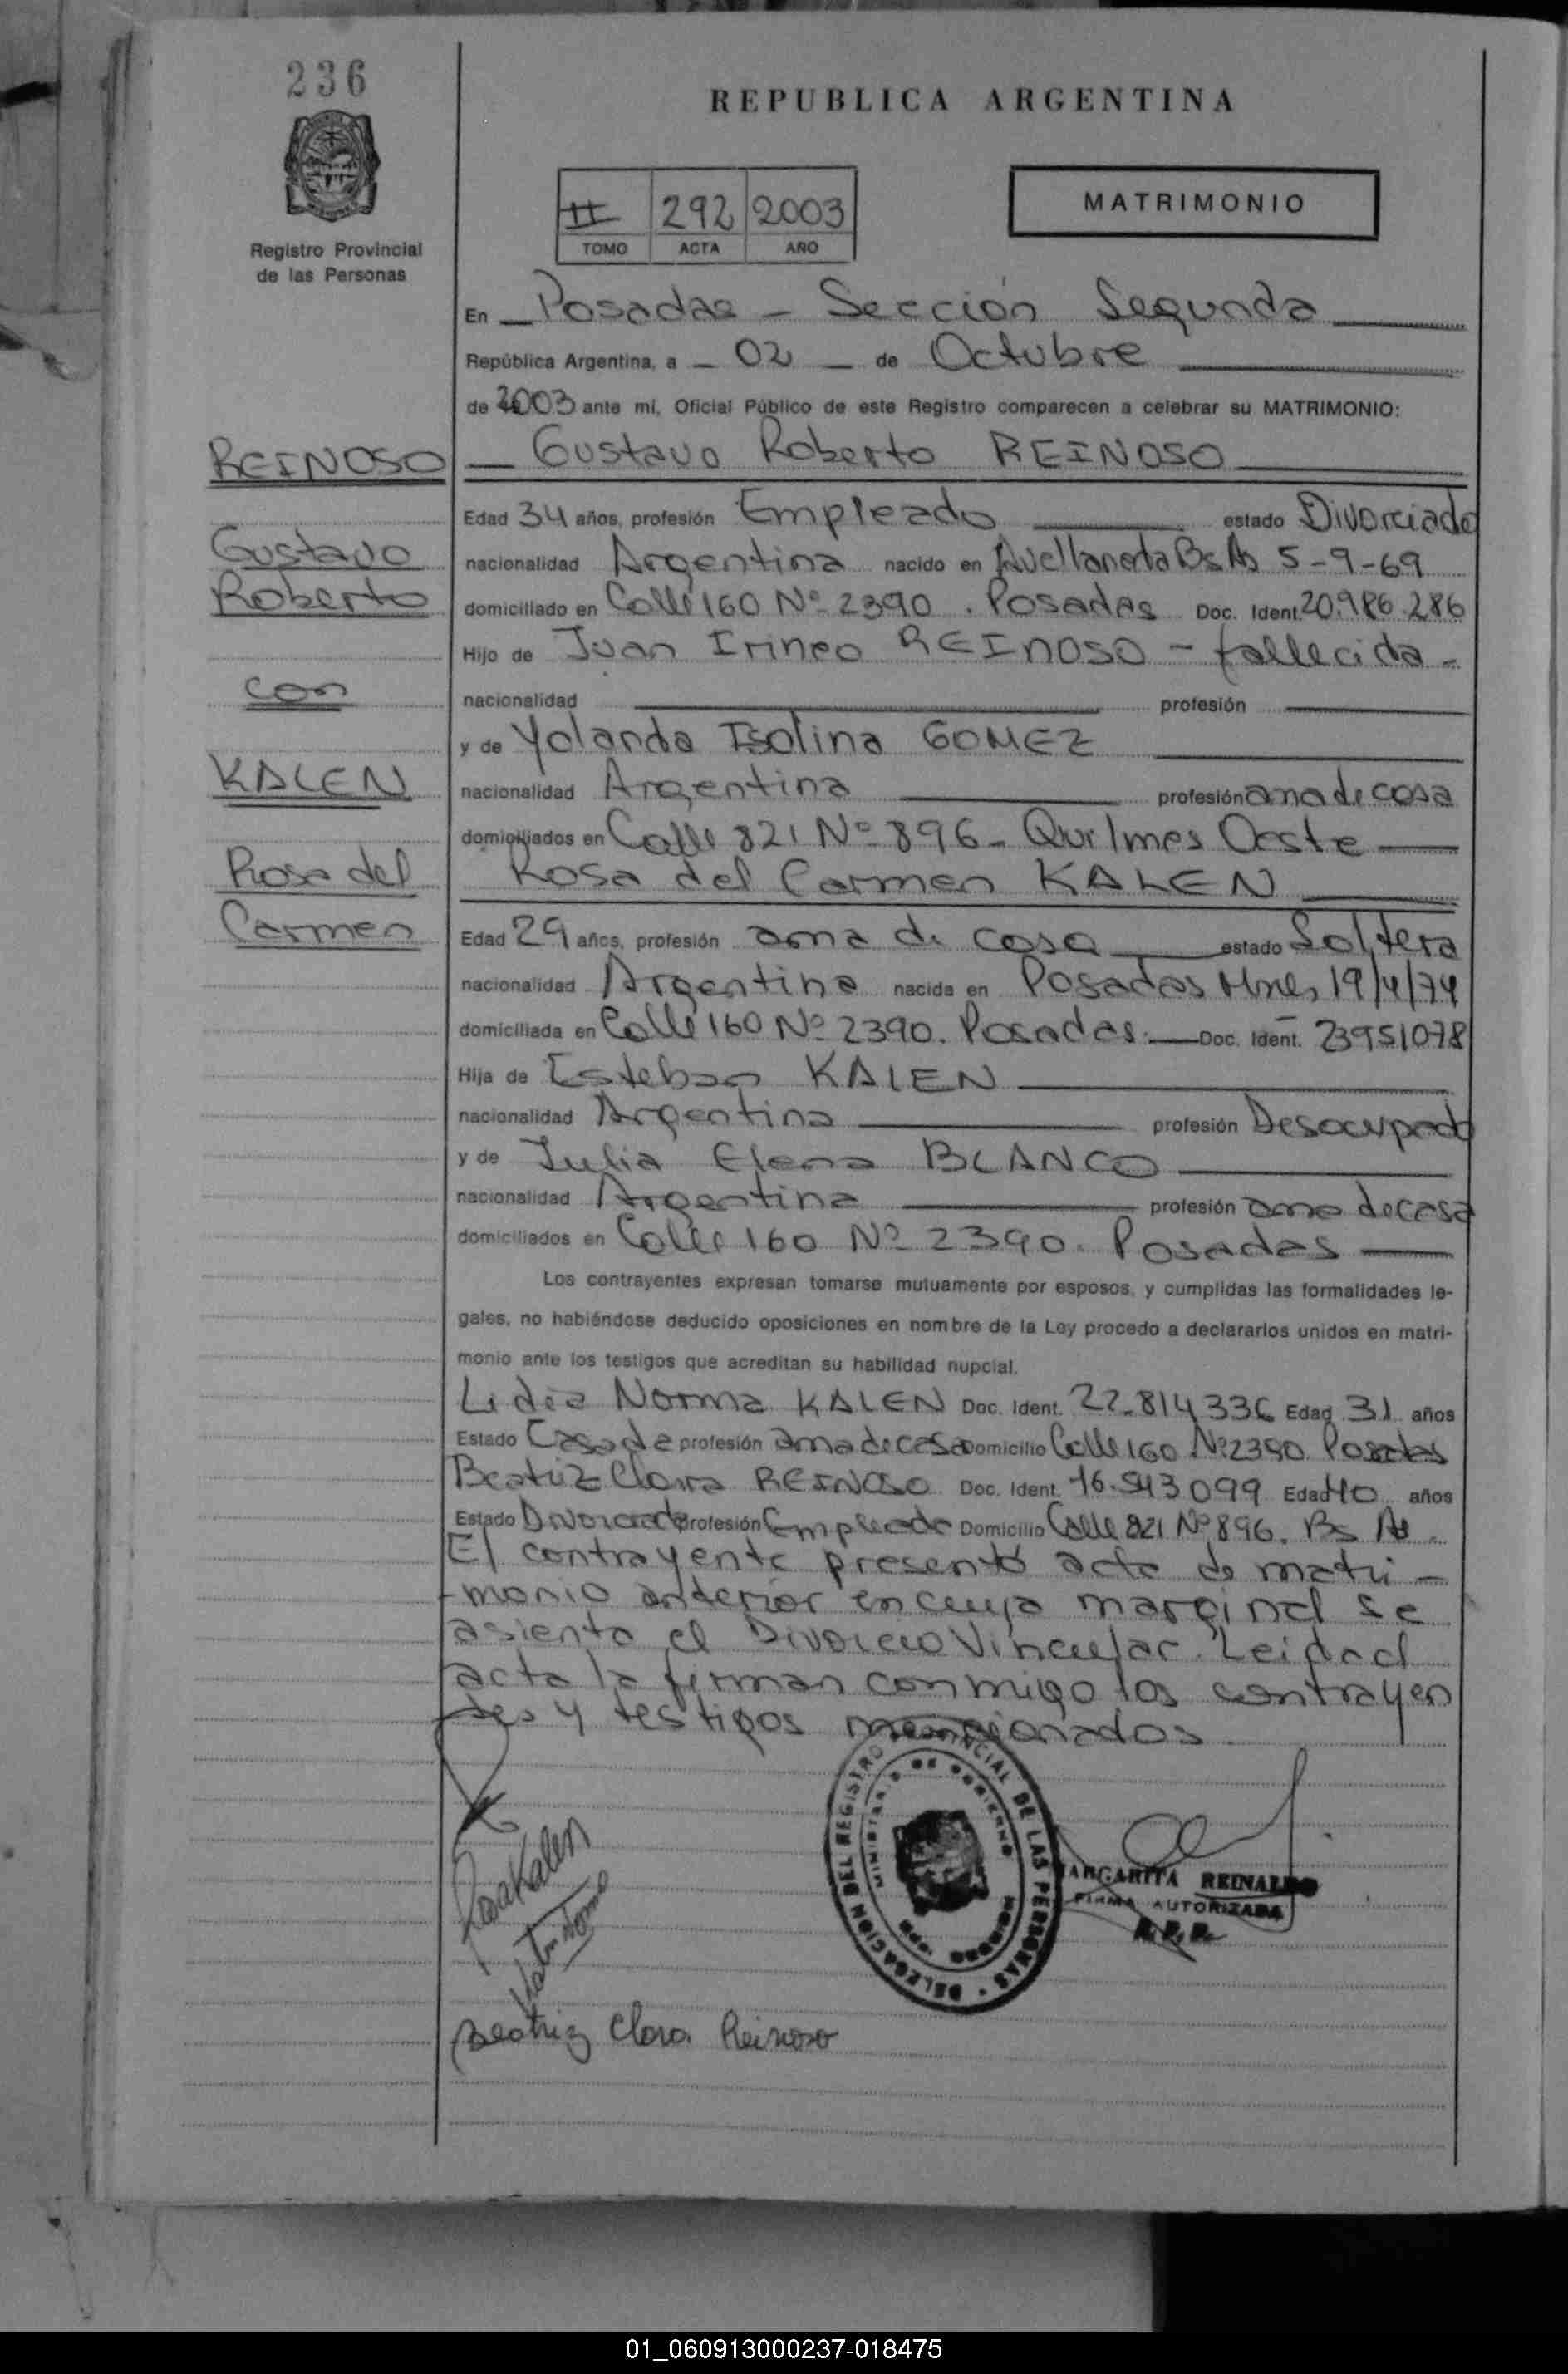 236
REPUBLICA ARGENTINA
Registro Provincial
de las Personas
II 292 2003
TOMO ACTA AÑO
MATRIMONIO
En Posadas - Sección Segunda
República Argentina, a - 02 - de Octubre
de 2003 ante mí, Oficial Público de este Registro comparecen a celebrar su MATRIMONIO:
REINOSO
Gustavo
Roberto
con
KALEN
Rosa del
Carmen
Gustavo Roberto REINOSO
Edad 34 años, profesión Empleado estado Divorciado
nacionalidad Argentina nacido en Avellaneda Bs As 5-9-69
domiciliado en Calle 160 Nº 2390. Posadas Doc. Ident. 20.986.286
Hijo de Juan Irineo REINOSO - fallecida -
nacionalidad profesión
y de Yolanda Isolina GOMEZ
nacionalidad Argentina profesión ama de casa
domiciliados en Calle 821 Nº 896 - Quilmes Oeste
Rosa del Carmen KALEN
Edad 29 años, profesión ama de casa estado Soltera
nacionalidad Argentina nacida en Posadas Mnes 19/4/74
domiciliada en Calle 160 Nº 2390. Posadas. Doc. Ident. 23951078
Hija de Esteban KALEN
nacionalidad Argentina profesión Desocupado
y de Julia Elena BLANCO
nacionalidad Argentina profesión ama de casa
domiciliados en Calle 160 Nº 2390. Posadas
Los contrayentes expresan tomarse mutuamente por esposos, y cumplidas las formalidades le-
gales, no habiéndose deducido oposiciones en nombre de la Ley procedo a declararlos unidos en matri-
monio ante los testigos que acreditan su habilidad nupcial.
Lidia Norma KALEN Doc. Ident. 22.814336 Edad 31 años
Estado Casada profesión ama de casa Domicilio Calle 160 Nº 2390 Posadas
Beatriz Clara REINOSO Doc. Ident. 16.543099 Edad 40 años
Estado Divorciada profesión Empleada Domicilio Calle 821 Nº 896. Bs As.
El contrayente presentó acta de matri-
-monio anterior en cuya marginal se
asienta el Divorcio Vincular. Leida el
acta la firman conmigo los contrayen
tes y testigos mencionados.
DELEGACION DEL REGISTRO PROVINCIAL DE LAS PERSONAS
MINISTERIO DE GOBIERNO
MARGARITA REINALDO
FIRMA AUTORIZADA
R.P.P.
Rosa Kalen
Beatriz Clara Reinoso
01_060913000237-018475